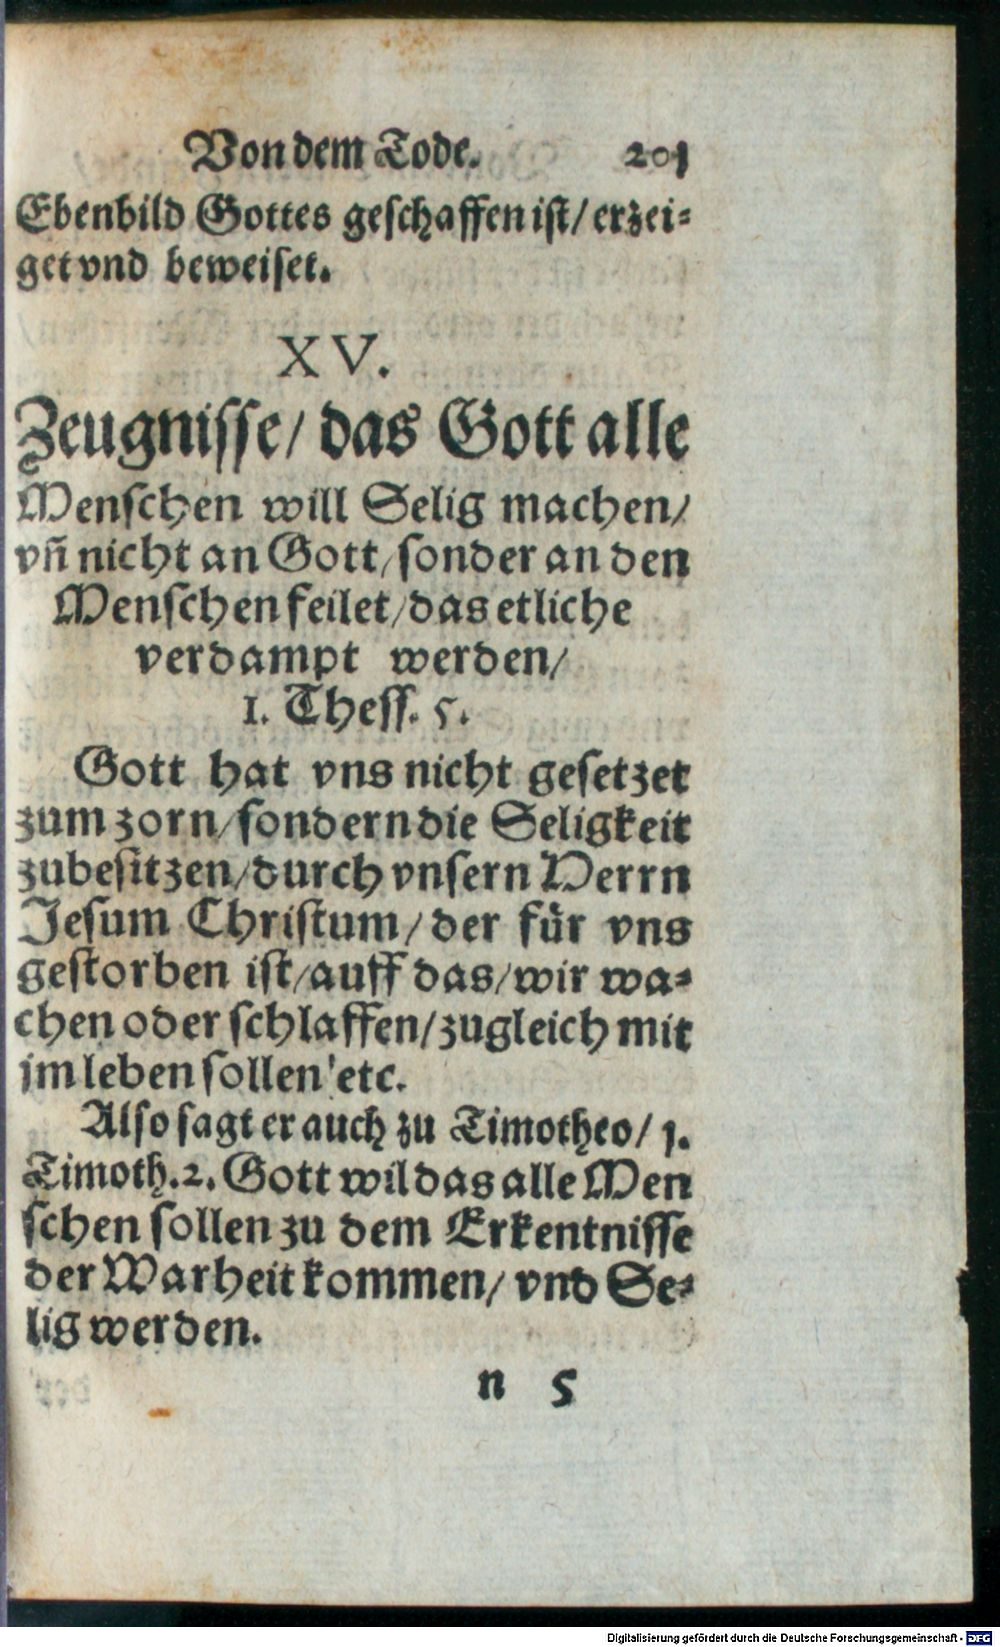 Von dem Tode. 201
Ebenbild Gottes geschaffen ist/ erzei-
get vnd beweiset.
XV.
Zeugnisse/ das Gott alle
Menschen will Selig machen/
vñ nicht an Gott/ sonder an den
Menschen feilet/ das etliche
verdampt werden/
1. Thess. 5.
Gott hat vns nicht gesetzet
zum zorn/ sondern die Seligkeit
zubesitzen/ durch vnsern Herrn
Jesum Christum/ der für vns
gestorben ist/ auff das/ wir wa-
chen oder schlaffen/ zugleich mit
jm leben sollen' etc.
Also sagt er auch zu Timotheo/ 1.
Timoth. 2. Gott wil das alle Men
schen sollen zu dem Erkentnisse
der Warheit kommen/ vnd Se-
lig werden.
n 5
Digitalisierung gefördert durch die Deutsche Forschungsgemeinschaft - DFG